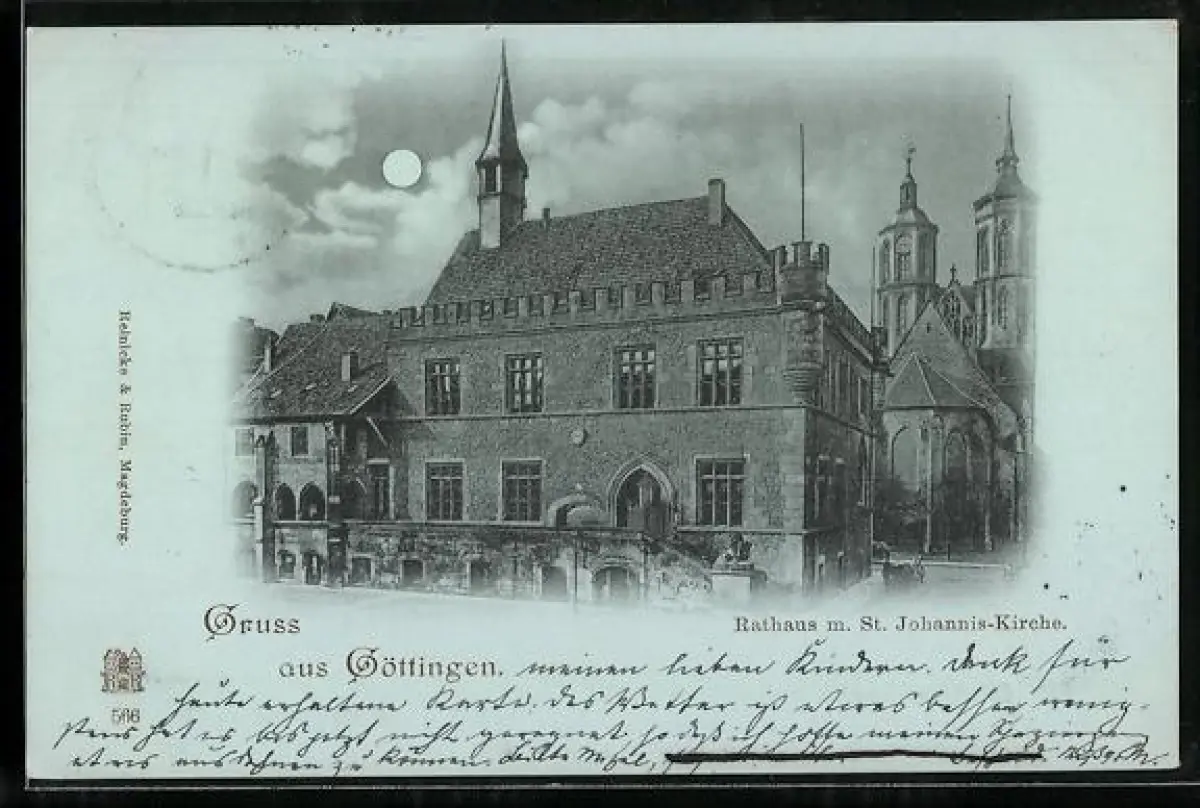 Reinicke & Rubin, Magdeburg.
Rathaus m. St. Johannis-Kirche.
Gruss
aus Göttingen. meinen lieben Kindern. Dank für
566
heute erhaltene Karte. Das Wetter ist etwas besser wenig-
stens hat es bis jetzt nicht geregnet so daß ich hoffe meinen
etwas ausdehnen zu können.